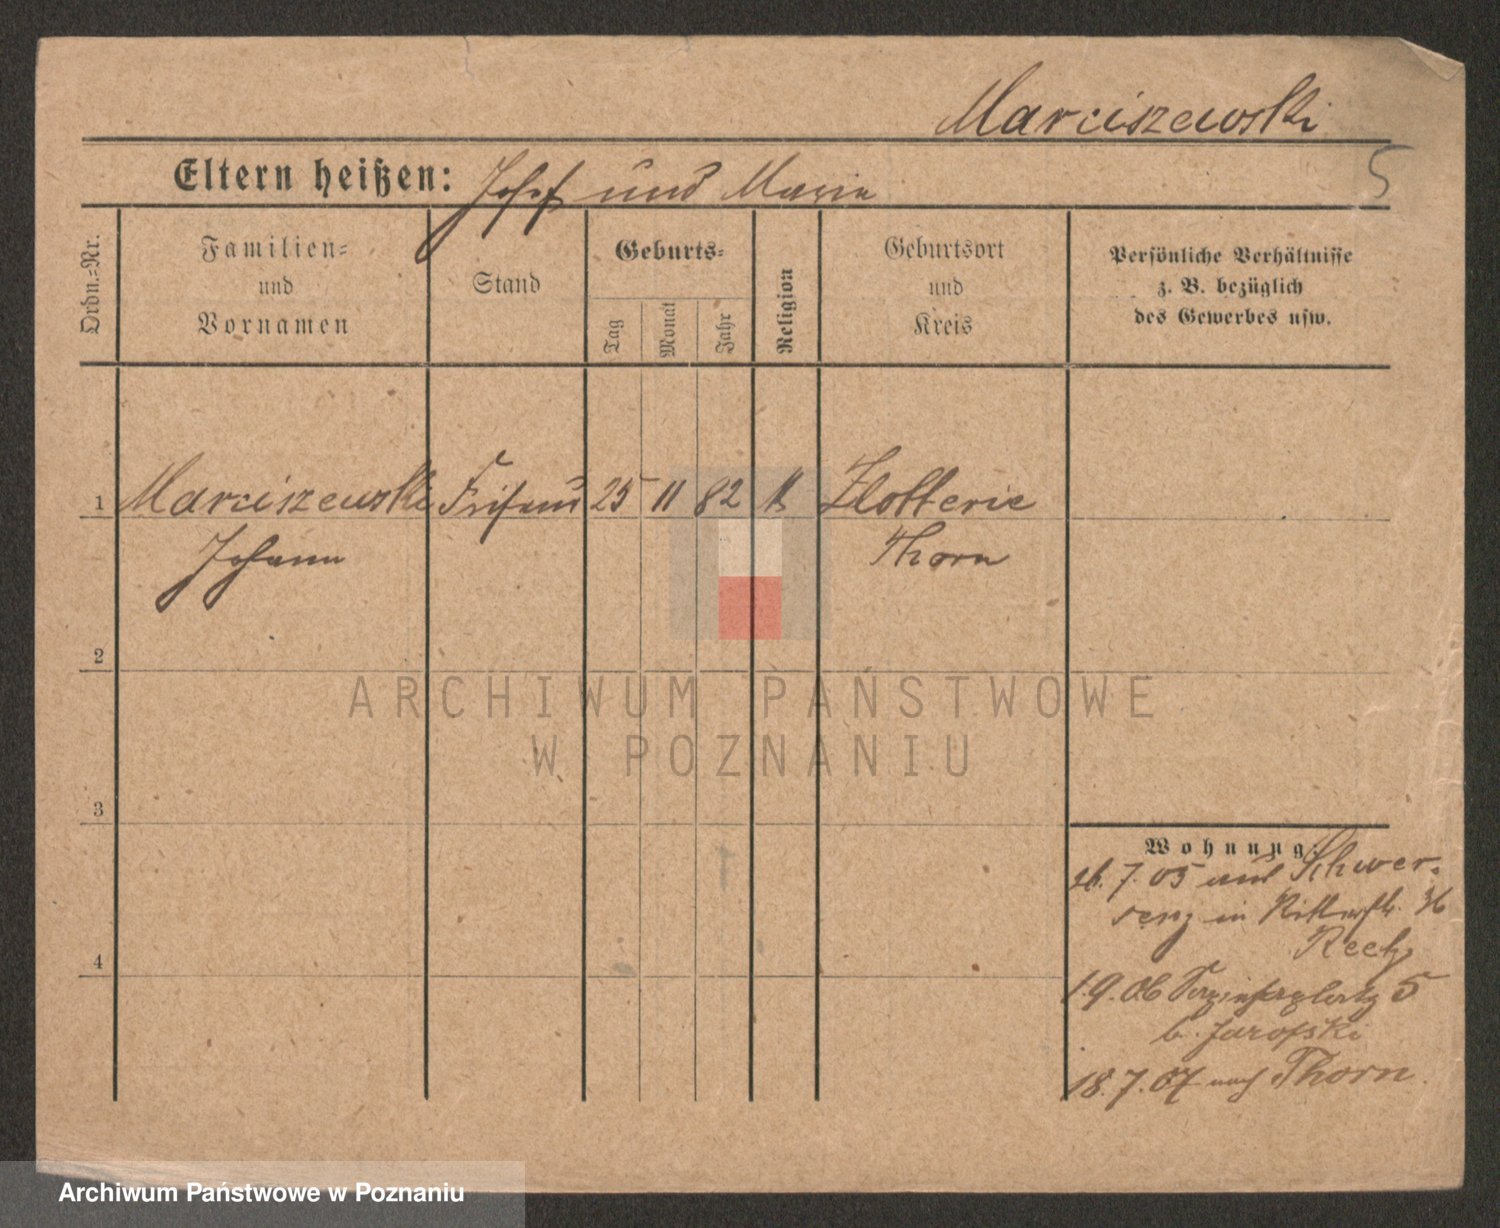 Marciszewski
5
Eltern heißen: Josef und Maria
Ordn.-Nr.
Familien-
und
Vornamen
Stand
Geburts-
Tag
Monat
Jahr
Religion
Geburtsort
und
Kreis
Persönliche Verhältnisse
z. B. bezüglich
des Gewerbes usw.
1 Marciszewski Friseur 25 11 82 k Zlotterie
Johann Thorn
2
ARCHIWUM PAŃSTWOWE
W POZNANIU
3
Wohnung:
26.7.05 aus Schwer-
senz in Ritterstr. 36
1.9.06 5
b. Jarofski
18.7.07 nach Thorn
4
Archiwum Państwowe w Poznaniu